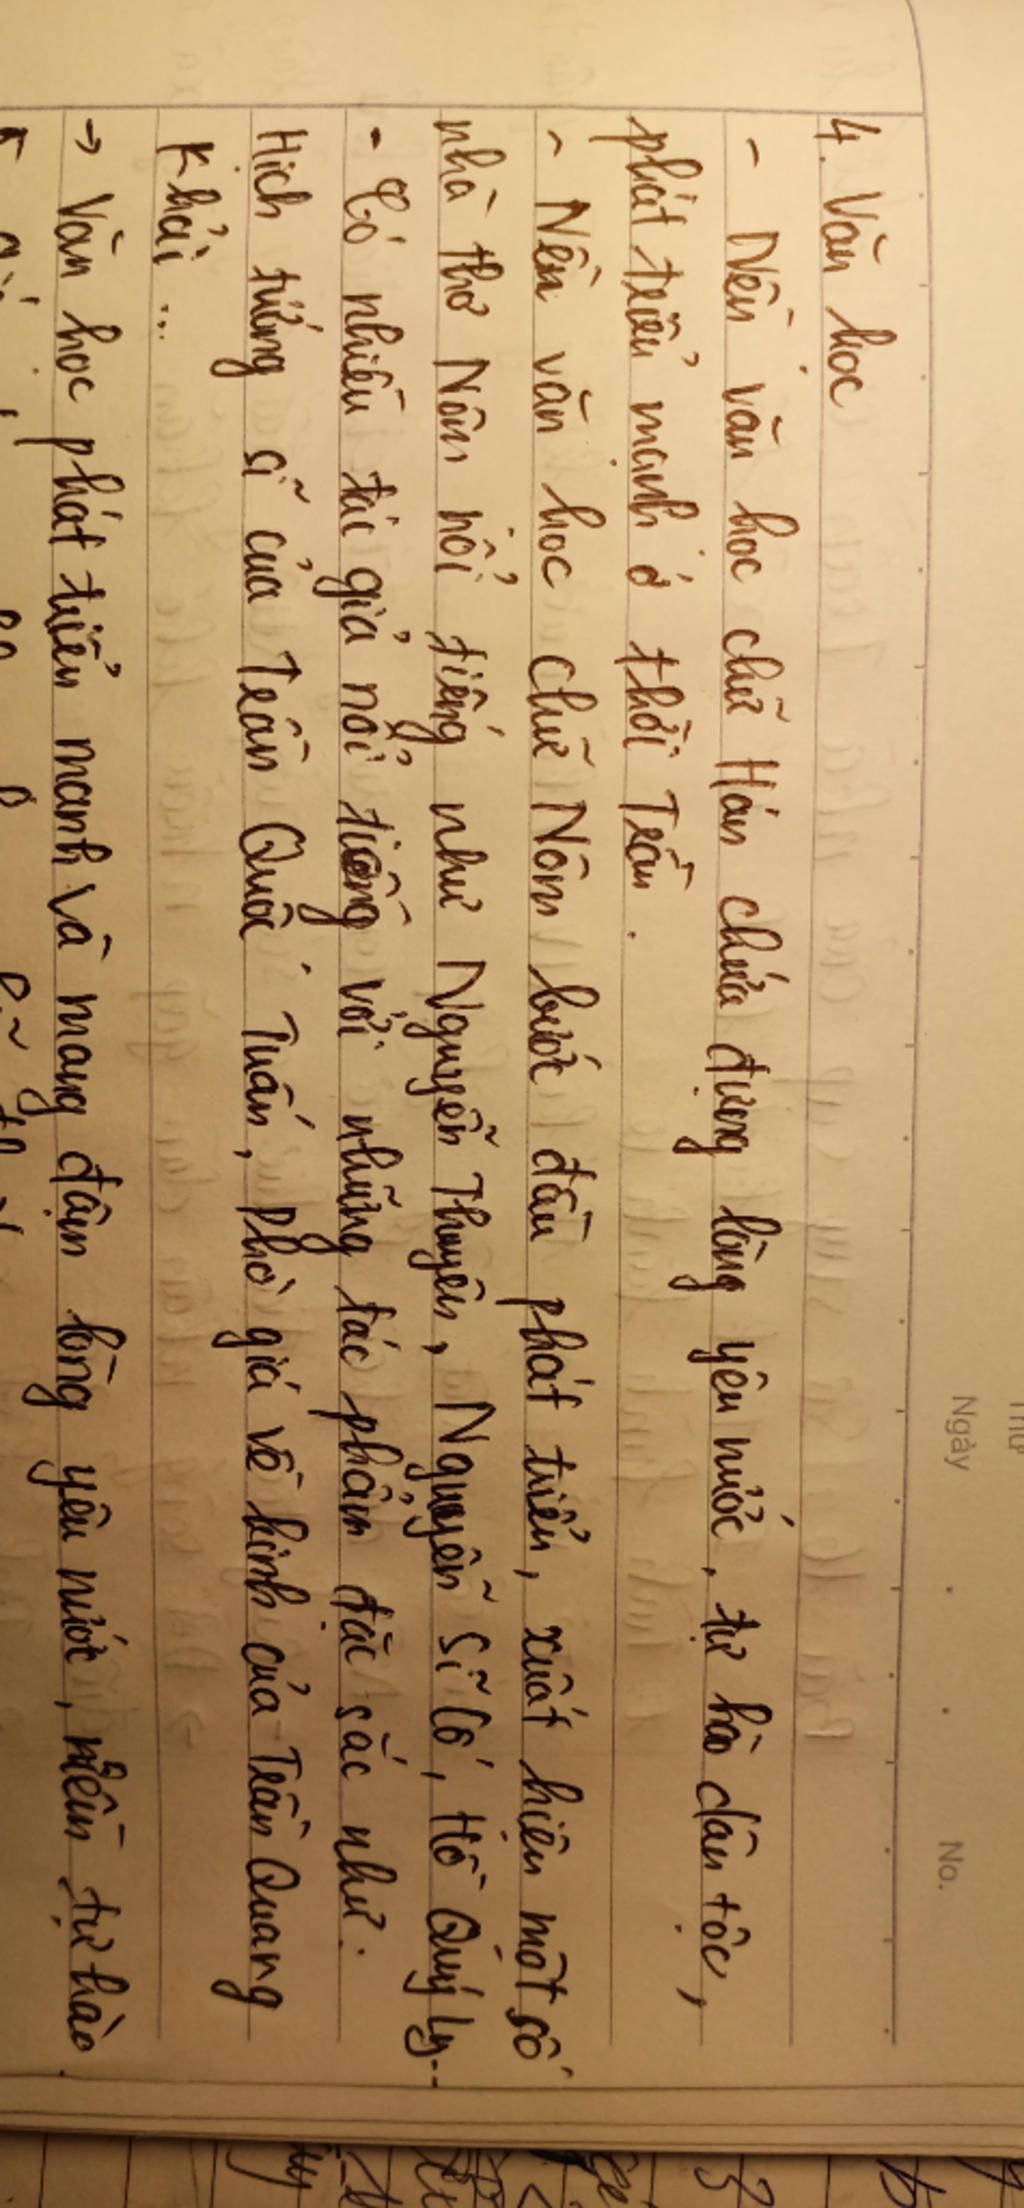 Thứ
Ngày
No.
4. Văn học
- Nền văn học chữ Hán chứa đựng lòng yêu nước, tự hào dân tộc,
phát triển mạnh ở thời Trần.
- Nền văn học chữ Nôm bước đầu phát triển, xuất hiện một số
nhà thơ Nôm nổi tiếng như Nguyễn Thuyên, Nguyễn Sĩ Cố, Hồ Quý Ly...
- Có nhiều tác giả nổi tiếng với những tác phẩm đặc sắc như:
Hịch tướng sĩ của Trần Quốc Tuấn, Phò giá về kinh của Trần Quang
Khải ...
→ Văn học phát triển mạnh và mang đậm lòng yêu nước, niềm tự hào